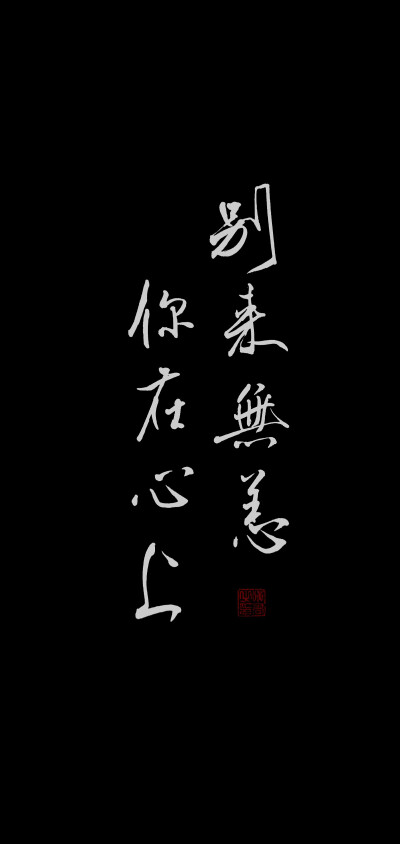 别来無恙
你在心上